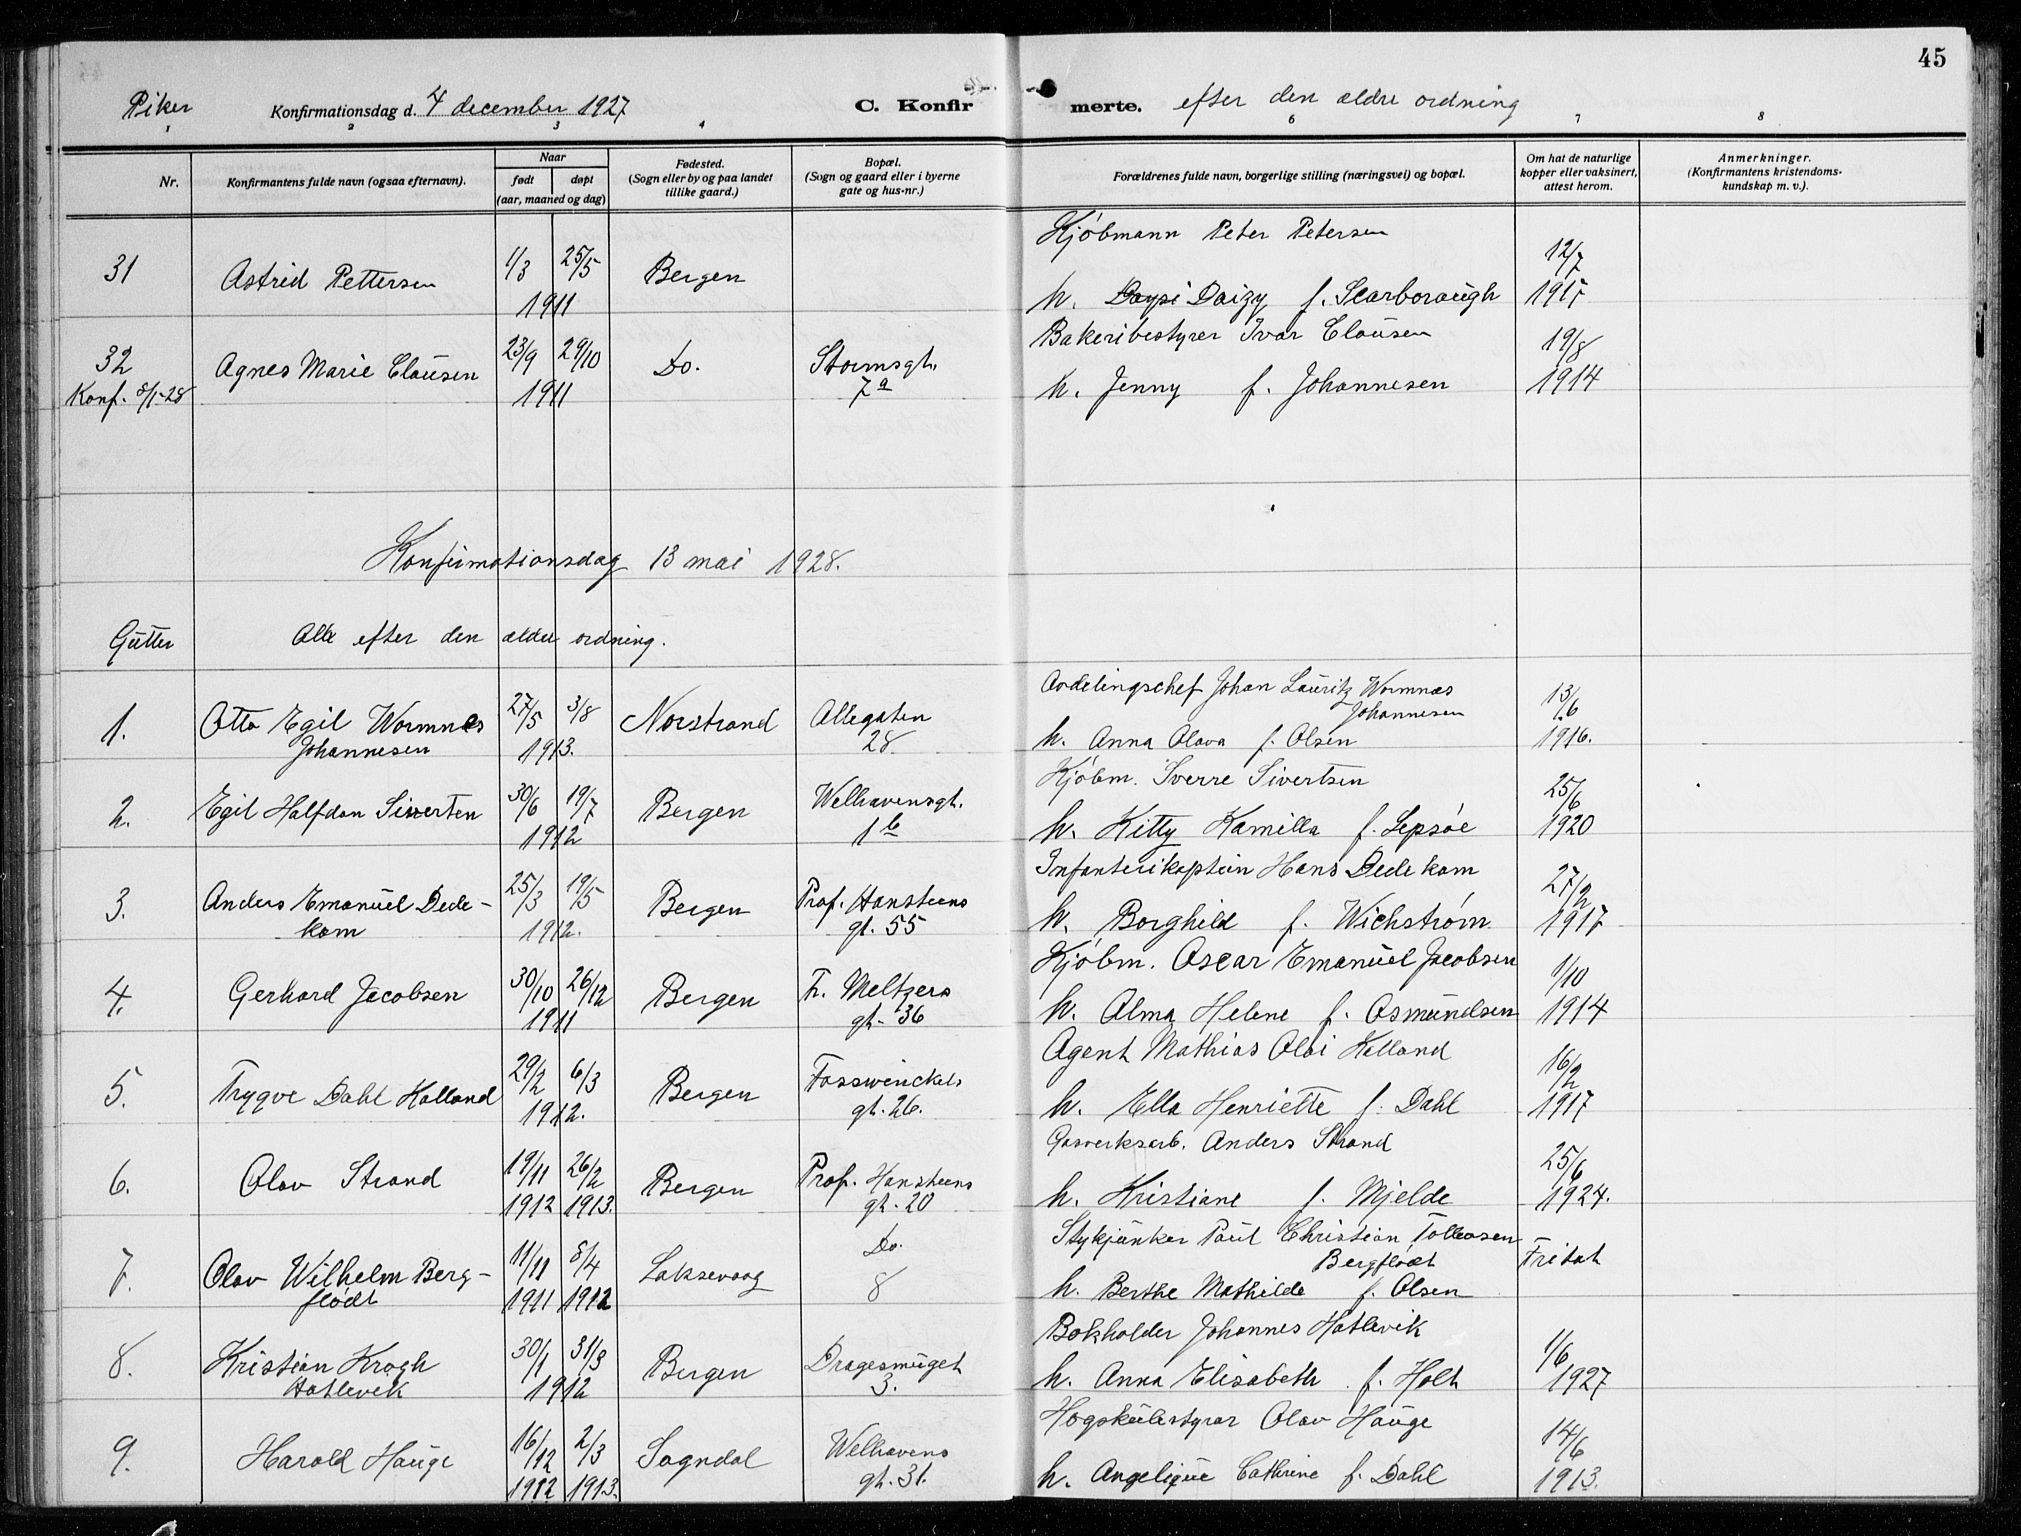 45
Piker Konfirmationsdag d. 4 december 1927 C. Konfirmerte. efter den ældre ordning
1 2 3 4 6 7 8
Nr. Konfirmantens fulde navn (ogsaa efternavn). Naar født døpt (aar, maaned og dag)
Fødested. (Sogn eller by og paa landet tillike gaard.)
Bopæl. (Sogn og gaard eller i byerne gate og hus-nr.)
Forældrenes fulde navn, borgerlige stilling (næringsvei) og bopæl.
Om hat de naturlige kopper eller vaksinert, attest herom.
Anmerkninger. (Konfirmantens kristendoms-kundskap m. v.).
Kjöbmann Peter Petersen
31 Astrid Pettersen 1/3 25/5 Bergen 12/7
1911 h. Daizy f. Scarboraugh 1917
Bakeribestyrer Ivar Clausen
32 Agnes Marie Clausen 23/9 29/10 Do. Stormsgt. 19/8
Konf. 8/1-28 1911 7a h. Jenny f. Johannesen 1914
Konfirmationsdag 13 mai 1928.
Gutter Alle efter den ældre ordning.
Avdelingschef Johan Lauritz Wormnæs
Johannesen
1. Otto Egil Wormnes 27/5 3/8 Norstrand Allegaten 13/6
Johannesen 1913. 28. h. Anna Olava f. Olsen 1916.
Kjöbm. Sverre Sivertsen
2. Egil Halfdan Siverten 30/6 19/7 Bergen Welhavensgt. 25/6
1912 1b h. Kitty Kamilla f. Lepsöe 1920
Infanterikaptein Hans Dedekam
3. Anders Emanuel Dede- 25/3 19/5 Bergen Prof. Hansteens 27/2
kam 1912. gt. 55 h. Borghild f. Wichstrøm. 1917
Kjöbm. Oscar Emanuel Jacobsen
4. Gerhard Jacobsen 30/10 26/12 Bergen Fr. Meltzers 1/10
1911 gt. 36 h. Alma Helene f. Asmundsen 1914
Agent Mathias Olai Kalland
5. Trygve Dahl Kalland 29/2 6/3 Bergen Fosswinckels 16/2
1912. gt. 26. h. Ella Henriette f. Dahl 1917
Gasverksarb. Anders Strand
6. Olav Strand 19/11 26/2 Bergen Prof. Hansteens 25/6
1912 1913. gt. 20 h. Kristiane f. Mjelde 1924.
Stykjunker Paul Christian Tollevsen
Bergflødt
7. Olav Wilhelm Berg- 11/11 8/4 Laksevaag Do. Fritat
flödt 1911 1912 8 h. Berthe Mathilde f. Olsen
Bokholder Johannes Hatlevik
8. Kristian Krogh 30/1 31/3 Bergen Dragesmuget 1/6
Hatlevik 1912 3. h. Anna Elisabeth f. Holt 1927
Hogskulestyrar Olav Hauge
9. Harald Hauge 16/12 2/3 Sogndal Welhavens 14/6
1912 1913. gt. 31. h. Angelique Cathrine f. Dahl 1913.